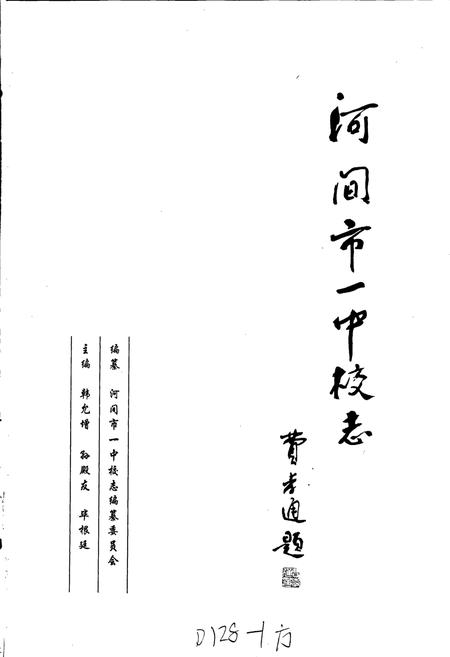 河间市一中校志
费孝通题
编纂 河间市一中校志编纂委员会
主编 韩允增 孙殿友 毕根廷
D128-1方